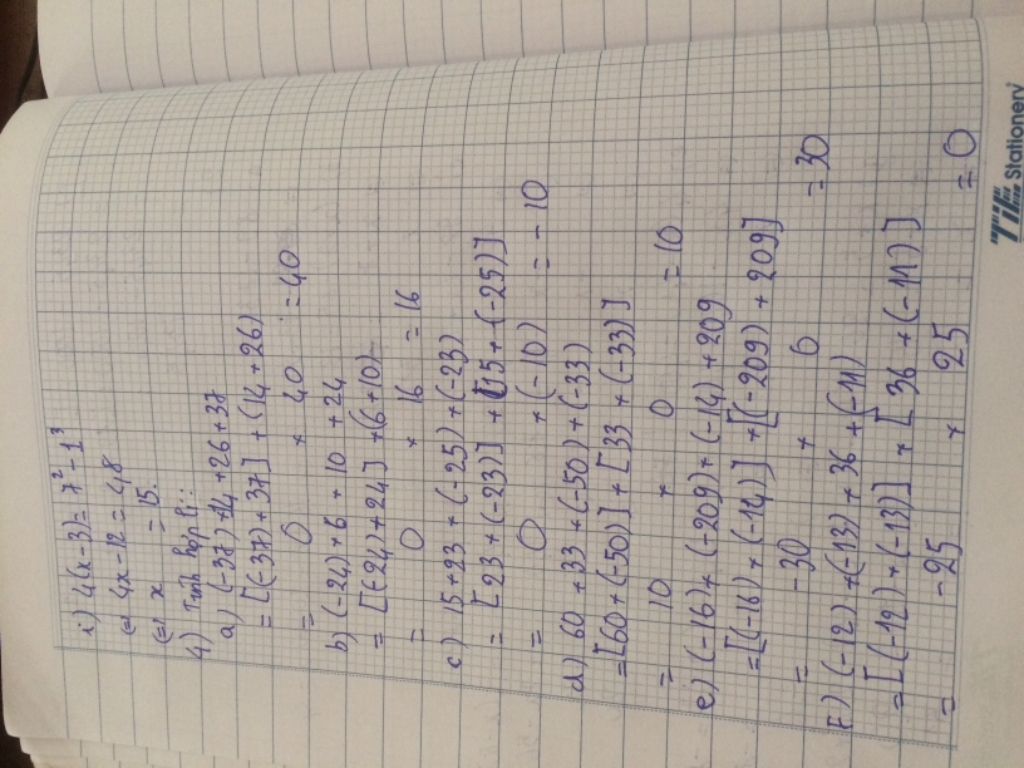 i) 4(x-3) = 7² - 1³
(=) 4x - 12 = 48
(=) x = 15.
4) Tính hợp lí:
a) (-37) + 14 + 26 + 37
= [(-37) + 37] + (14 + 26)
= 0 + 40 = 40
b) (-24) + 6 + 10 + 24
= [(-24) + 24] + (6 + 10)
= 0 + 16 = 16
c) 15 + 23 + (-25) + (-23)
= [23 + (-23)] + [15 + (-25)]
= 0 + (-10) = -10
d) 60 + 33 + (-50) + (-33)
= [60 + (-50)] + [33 + (-33)]
= 10 + 0 = 10
e) (-16) + (-209) + (-14) + 209
= [(-16) + (-14)] + [(-209) + 209]
= -30 + 0 = 30
f) (-12) + (-13) + 36 + (-11)
= [(-12) + (-13)] + [36 + (-11)]
= -25 + 25 = 0
TiTi Stationery